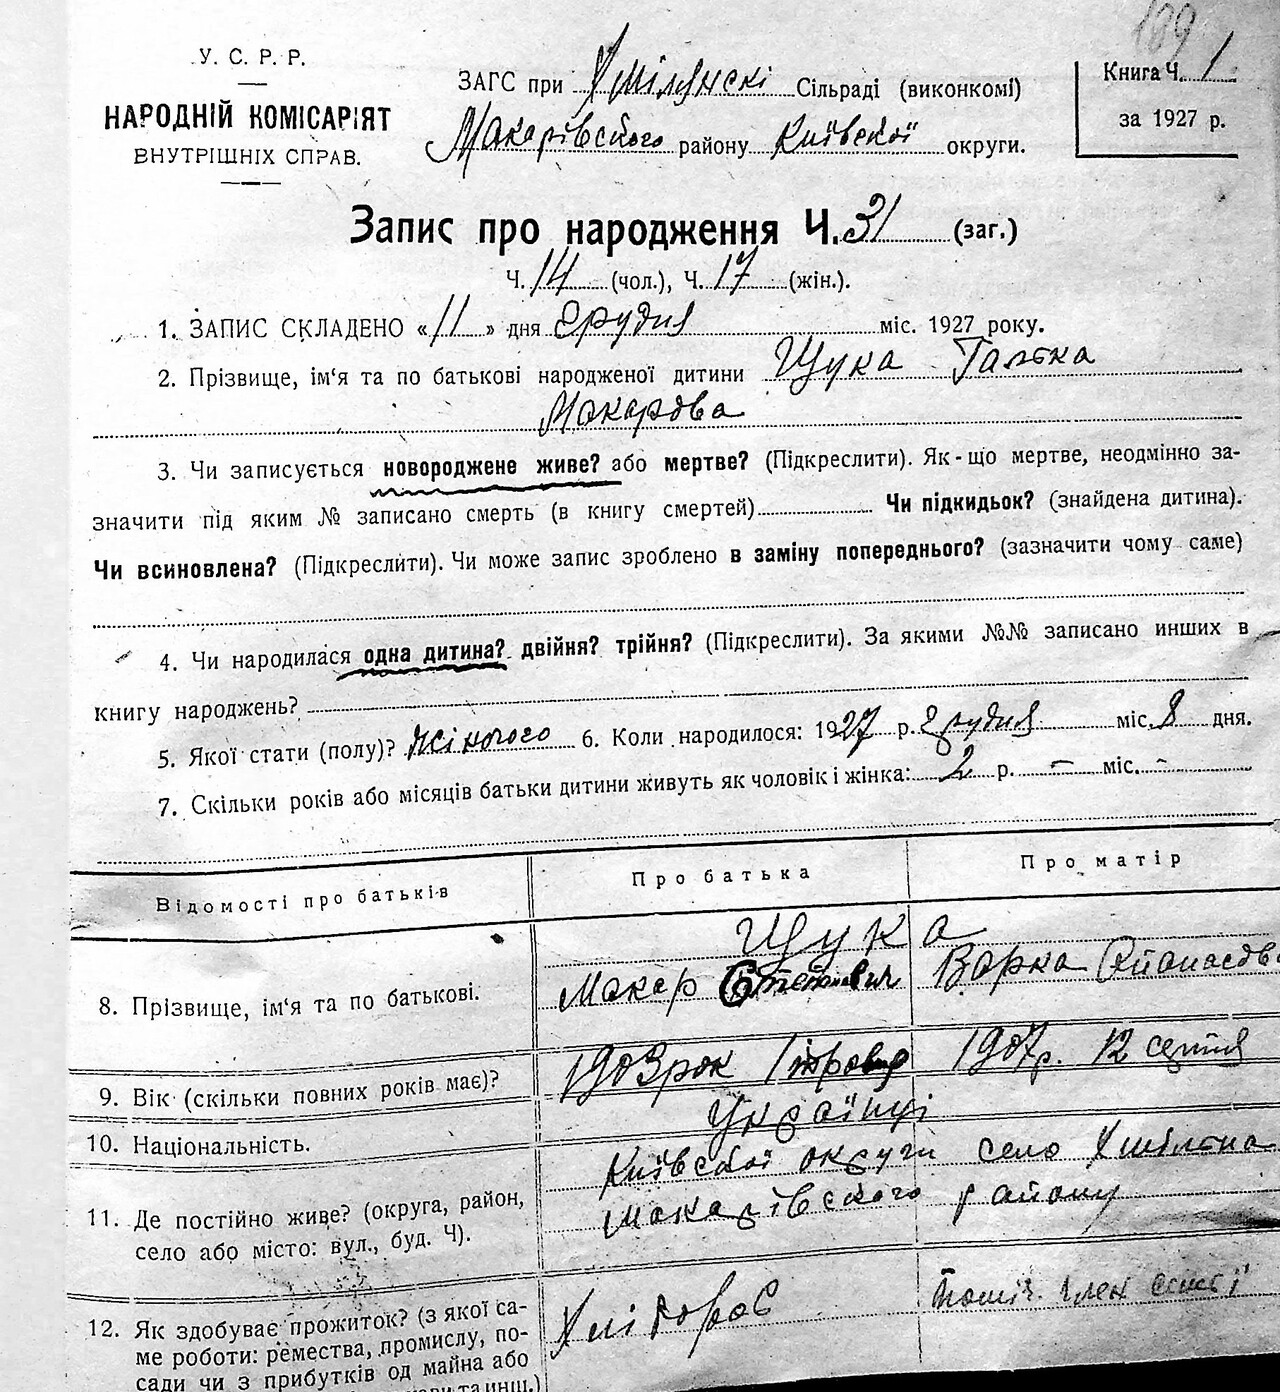 189
У. С. Р. Р.
НАРОДНІЙ КОМІСАРІЯТ
ВНУТРІШНІХ СПРАВ.
ЗАГС при Хмілянскі Сільраді (виконкомі)
Макарівського району Київскої округи.
Книга Ч. 1
за 1927 р.
Запис про народження Ч. 31 (заг.)
Ч. 14 (чол.), Ч. 17 (жін.).
1. ЗАПИС СКЛАДЕНО «11» дня Грудня міс. 1927 року.
2. Прізвище, ім‘я та по батькові народженої дитини Щука Галька
Макарова
3. Чи записується новороджене живе? або мертве? (Підкреслити). Як-що мертве, неодмінно за-
значити під яким № записано смерть (в книгу смертей) Чи підкидьок? (знайдена дитина).
Чи всиновлена? (Підкреслити). Чи може запис зроблено в заміну попереднього? (зазначити чому саме)
4. Чи народилася одна дитина? двійня? трійня? (Підкреслити). За якими №№ записано инших в
книгу народжень?
5. Якої стати (полу)? Жіночого 6. Коли народилося: 1927 р. Грудня міс. 8 дня.
7. Скільки років або місяців батьки дитини живуть як чоловік і жінка: 2 р. — міс. -
Відомості про батьків
Про батька
Про матір
8. Прізвище, ім‘я та по батькові.
Щука
Макар Степанович
Варка Опанасов
9. Вік (скільки повних років має)?
1903 рок 1
1907 р. 12 серпня
10. Національність.
Українці
11. Де постійно живе? (округа, район,
село або місто: вул., буд. Ч).
Київскої округи село Хмільна
Макарівського району
12. Як здобуває прожиток? (з якої са-
ме роботи: ремества, промислу, по-
сади чи з прибутків од майна або
та инш.)
Хлібороб
поміч. член сімї